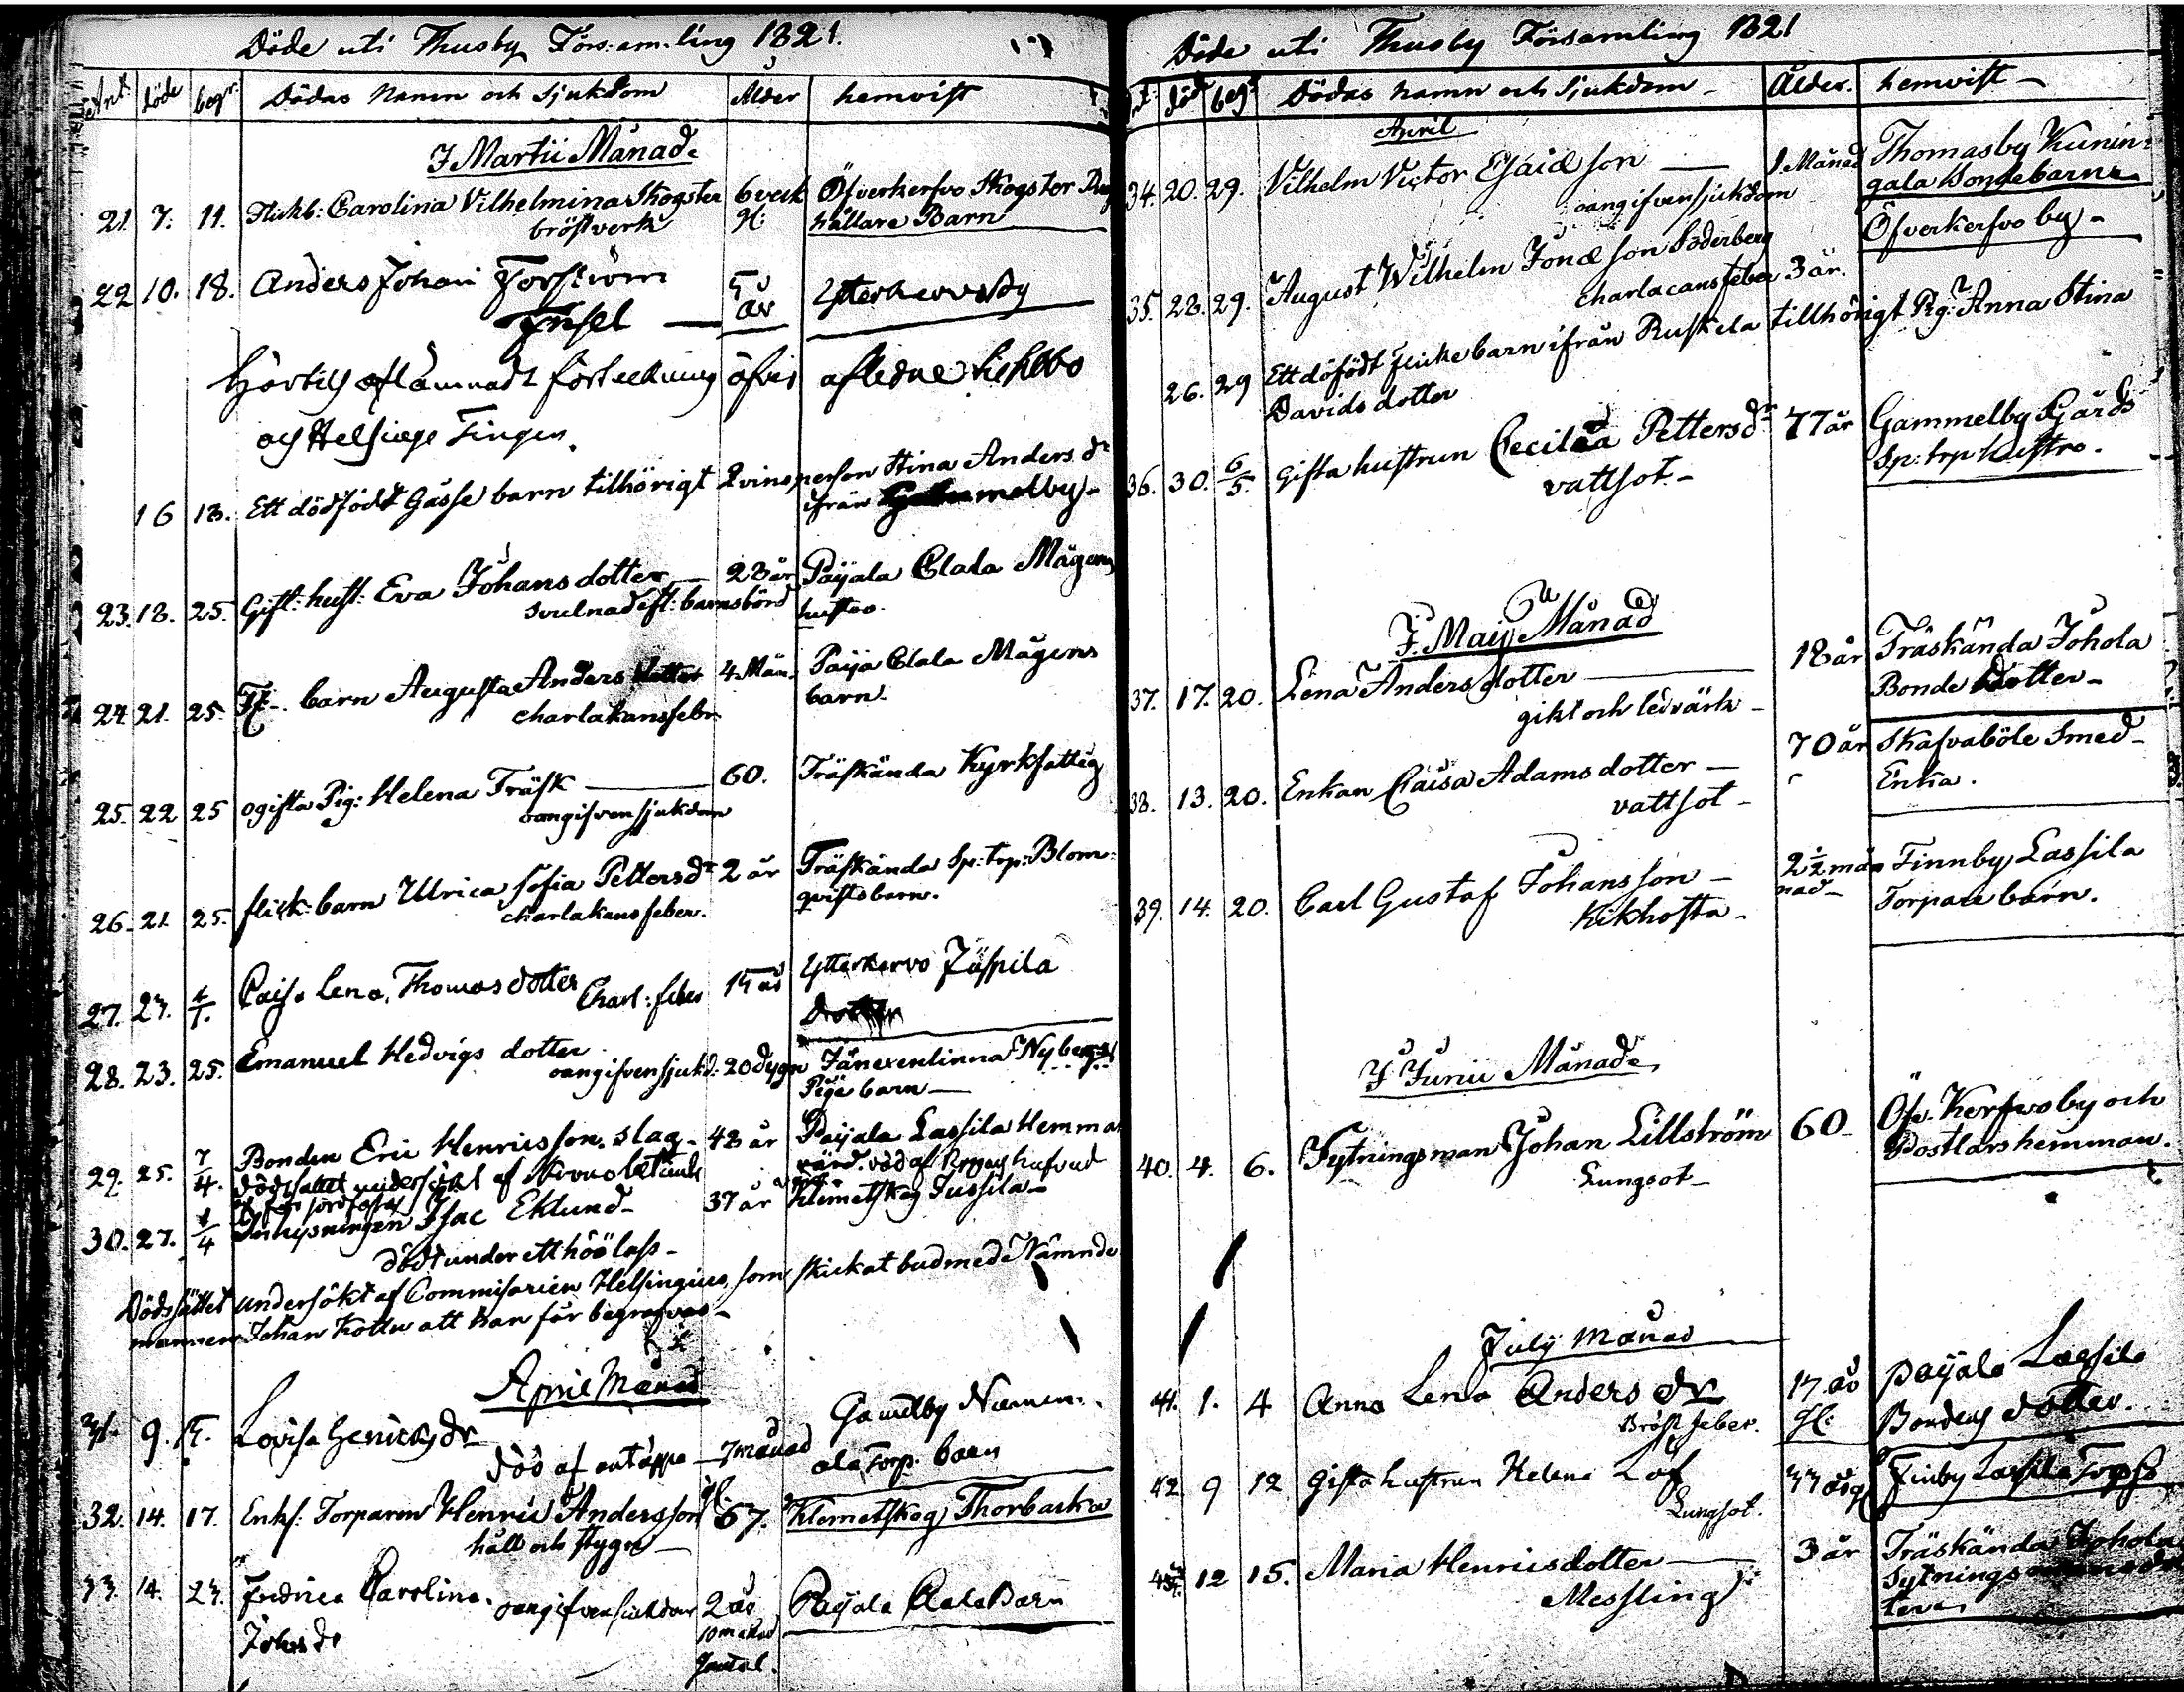 Döde uti Thusby Förs:am:ling 1821.
Ant. döde begr. Dödas Namn och Sjukdom Ålder hemvist
I Martii Månad.
21. 7. 11. Flickb: Carolina Vilhelmina Skogster 6 veck Öfverkerfvo Skogster
bröstverk gl: hållare Barn
22 10. 18. Anders Johan Forström 5 Ytterkervo by
år
Hörtils aflämnadt förteckning öfver afledne
och Helsinge Tingen.
16 18. Ett dödfödt Gåsse barn tilhörigt Qvinsperson Stina Anders dr
ifrån Gammelby
23. 18. 25. Gift: hust: Eva Johans dotter 28 år Paijala Clala Mågens
svulnad eft: barnsbörd hustro.
24. 21. 25. Fl- barn Augusta Anders dotter 4 Mån. Paija Clala Mågens
charlakansfebr. barn.
25. 22 25 ogifta Pig: Helena Träsk 60. Träskända Kyrkfattig
oangifven sjukdom
26. 21 25. flick-barn Ulrica Sofia Petters dr 2 år Träskända Sp: trp: Blom-
charlakans feber. qvists barn.
27. 27. 1/1. Caisa Lena Thomas dotter 15 år Ytterkervo Jussila
Charl: feber dotter
28. 23. 25. Emanuel Hedvigs dotter
oangifven sjukd: 20 dygn Nybergs
Pige barn
29. 25. 7/4. Bonden Eric Henricsson. slag- 48 år Paijala Lassila Hemman
dödsfallet undersökt af
30. 27. 1/4 Inhysningen Isac Eklund- 37 år Klemetskog Jussila-
död under ett hölass-
Dödssättet undersökt af Commisarien Helsingius, som skickat bud med Nämnde
mannen Johan Kottu att han får begrafvas-
April Månad
31. 9. 15. Lovisa Henricsdr Gamelby Niemen-
död af antäppa 7 månad ala Torp. barn
32. 14. 17. Enkl: Torparen Henric Andersson gl. 67. Klemetskog Thorbacka
håll och stygn
33. 14. 23. Fredrica Carolina oangifven sjukdom 2 år Paijala Clala Barn
Johs dr 10 månad
gamal.
Döde uti Thusby Församling 1821
död beg. Dödas namn och Sjukdom - Ålder. hemvist -
April
34. 20. 29. Vilhelm Victor Esaiæ son 1 Månad Thomasby Kunin-
oangifven sjukdom gala Bonde barn
35. 23. 29. August Wilhelm Jonæ son Söderberg Öfverkerfvo by-
charlacansfeber 3 år.
26. 29 Ett dödfödt flicke barn ifrån Ruskela tillhörigt Pig: Anna Stina
Davids dotter
36. 30. 6/5. Gifta hustrun Cecilia Petters dr 77 år Gammelby Gårds
vattsot- Sp: trp hustro.
I Maij Månad
37. 17. 20. Lena Anders dotter 18 år Träskända Johola
gikt och ledvärk - Bonde dotter-
38. 13. 20. Enkan Caisa Adams dotter - 70 år Skafvaböle Smed-
vattsot- Enka.
39. 14. 20. Carl Gustaf Johans son - 2 1/2 må- Finnby Lassila
Kikhosta- nad- Torpare barn.
I Junii Månad
40. 4. 6. Sytningsman Johan Lillström 60- Öfv. Kerfvo by och
Lungsot- Postlars hemman.
July månad
41. 1. 4 Anna Lena Anders dr 17 år Paijala Lassila
Bröst feber. gl: Bondens dotter.
42. 9 12 gifta hustrun Helena Löf 33 år gl Finby Lassila Torp
Lungsot.
12 15. Maria Henricsdotter 3 år Träskända Johola
Messling Sytnings